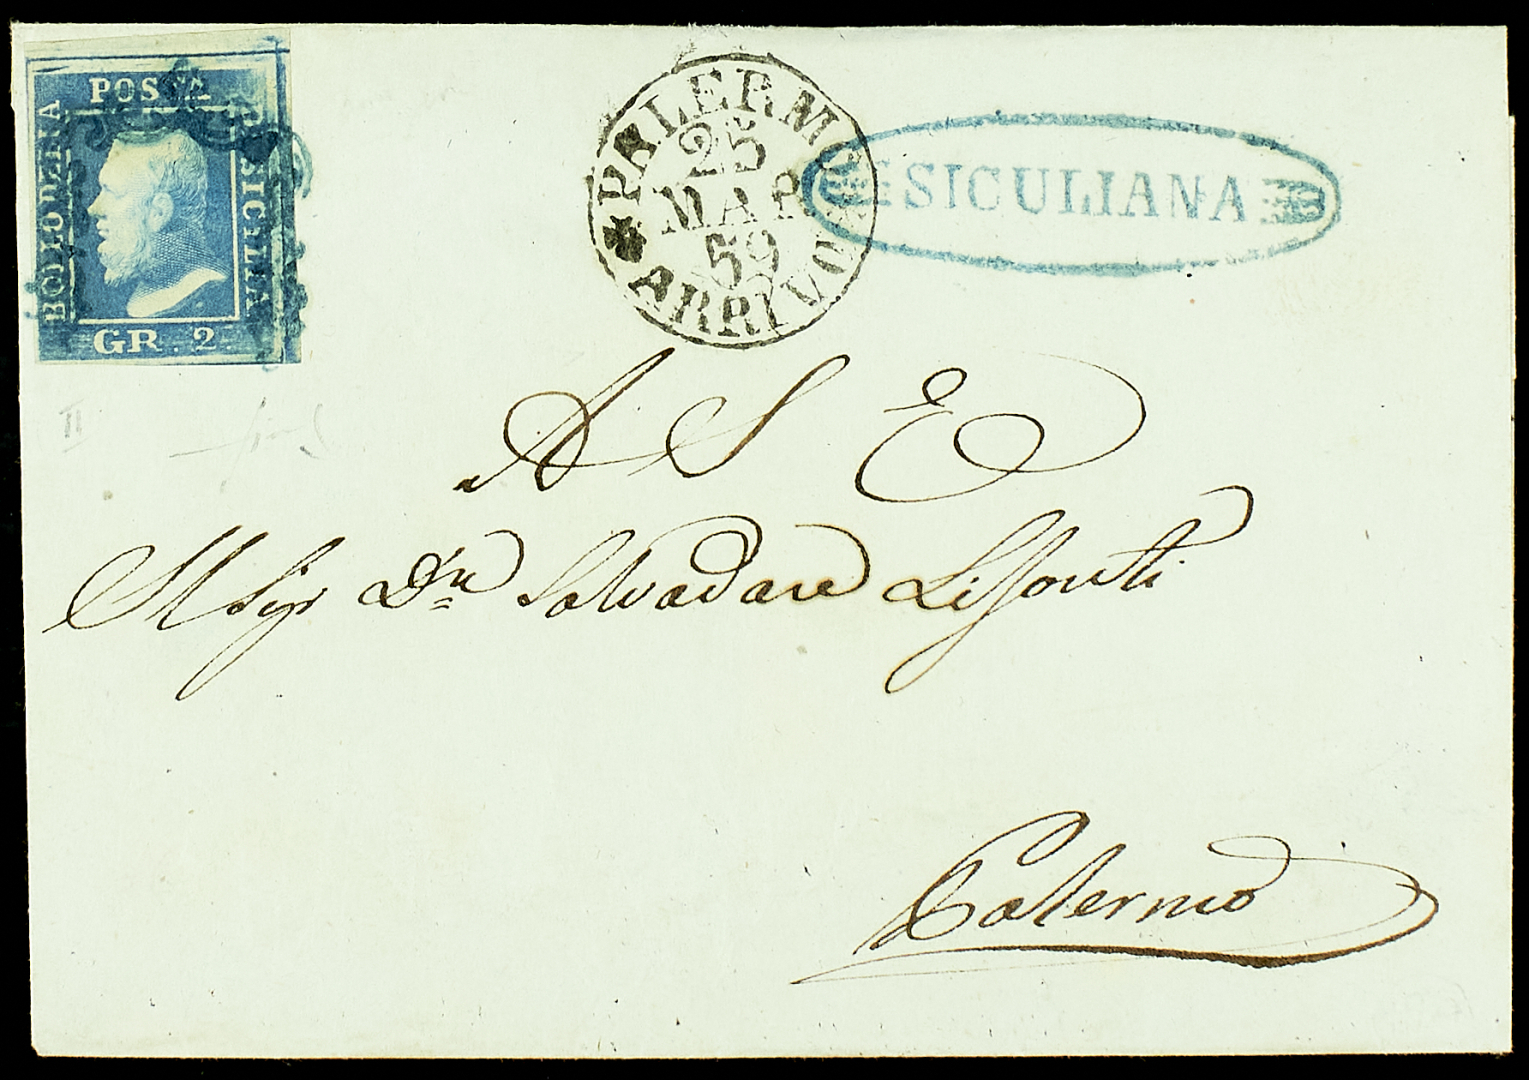 POSTA
BOLLO DELLA
SICILIA
GR. 2.
PALERMO
25
MAR
59
ARRIVO
SICULIANA
II
A S E
Il Sigr Dn Salvadore
Palermo